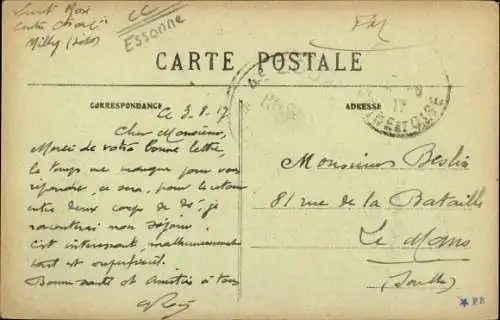 Milly (S&O)
Essonne
FM
CARTE POSTALE
CORRESPONDANCE
ADRESSE
Le 3.8.17
Cher Monsieur,
Merci de votre bonne lettre,
le temps me manque pour vous
répondre, ce sera pour le retour
entre deux corps de
raconterai mon séjour.
C'est intéressant, malheureusement
tout est superficiel.
Bonne santé et Amitiés à tous
Monsieur Beslin
81 rue de la Bataille
Le Mans
(Sarthe)
17
SEINE ET OISE
PB